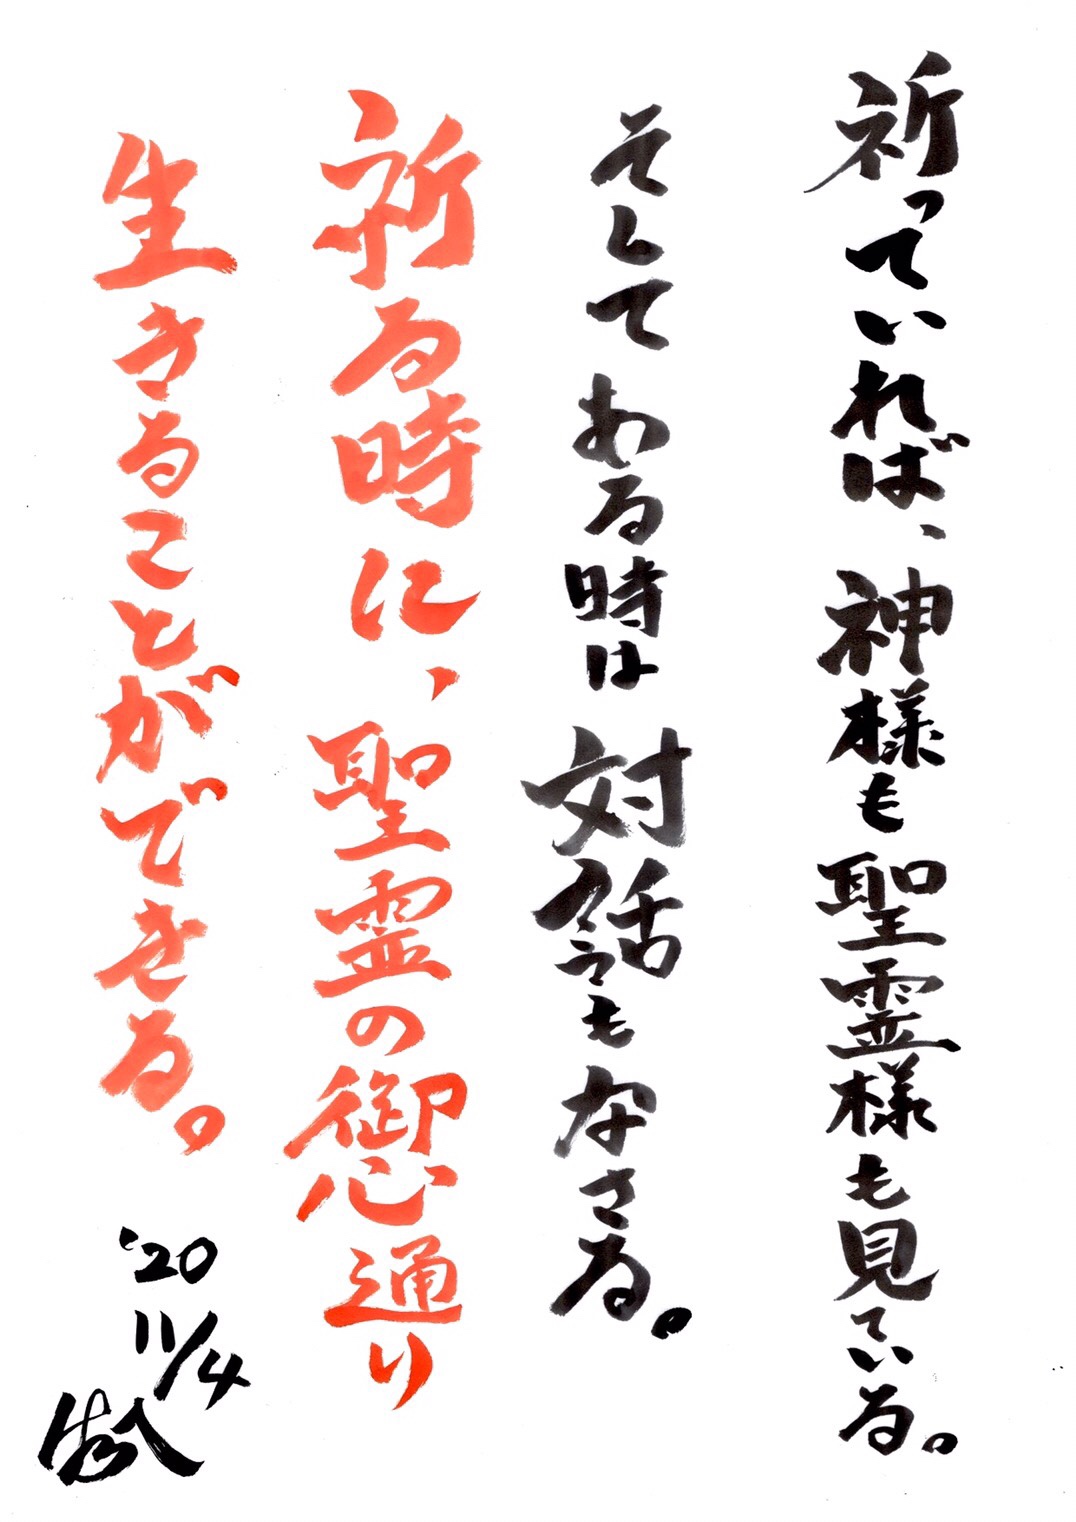 祈っていれば、神様も聖霊様も見ている。
そしてある時は対話もなさる。
祈る時に、聖霊の御心通り
生きることができる。
'20
11/4